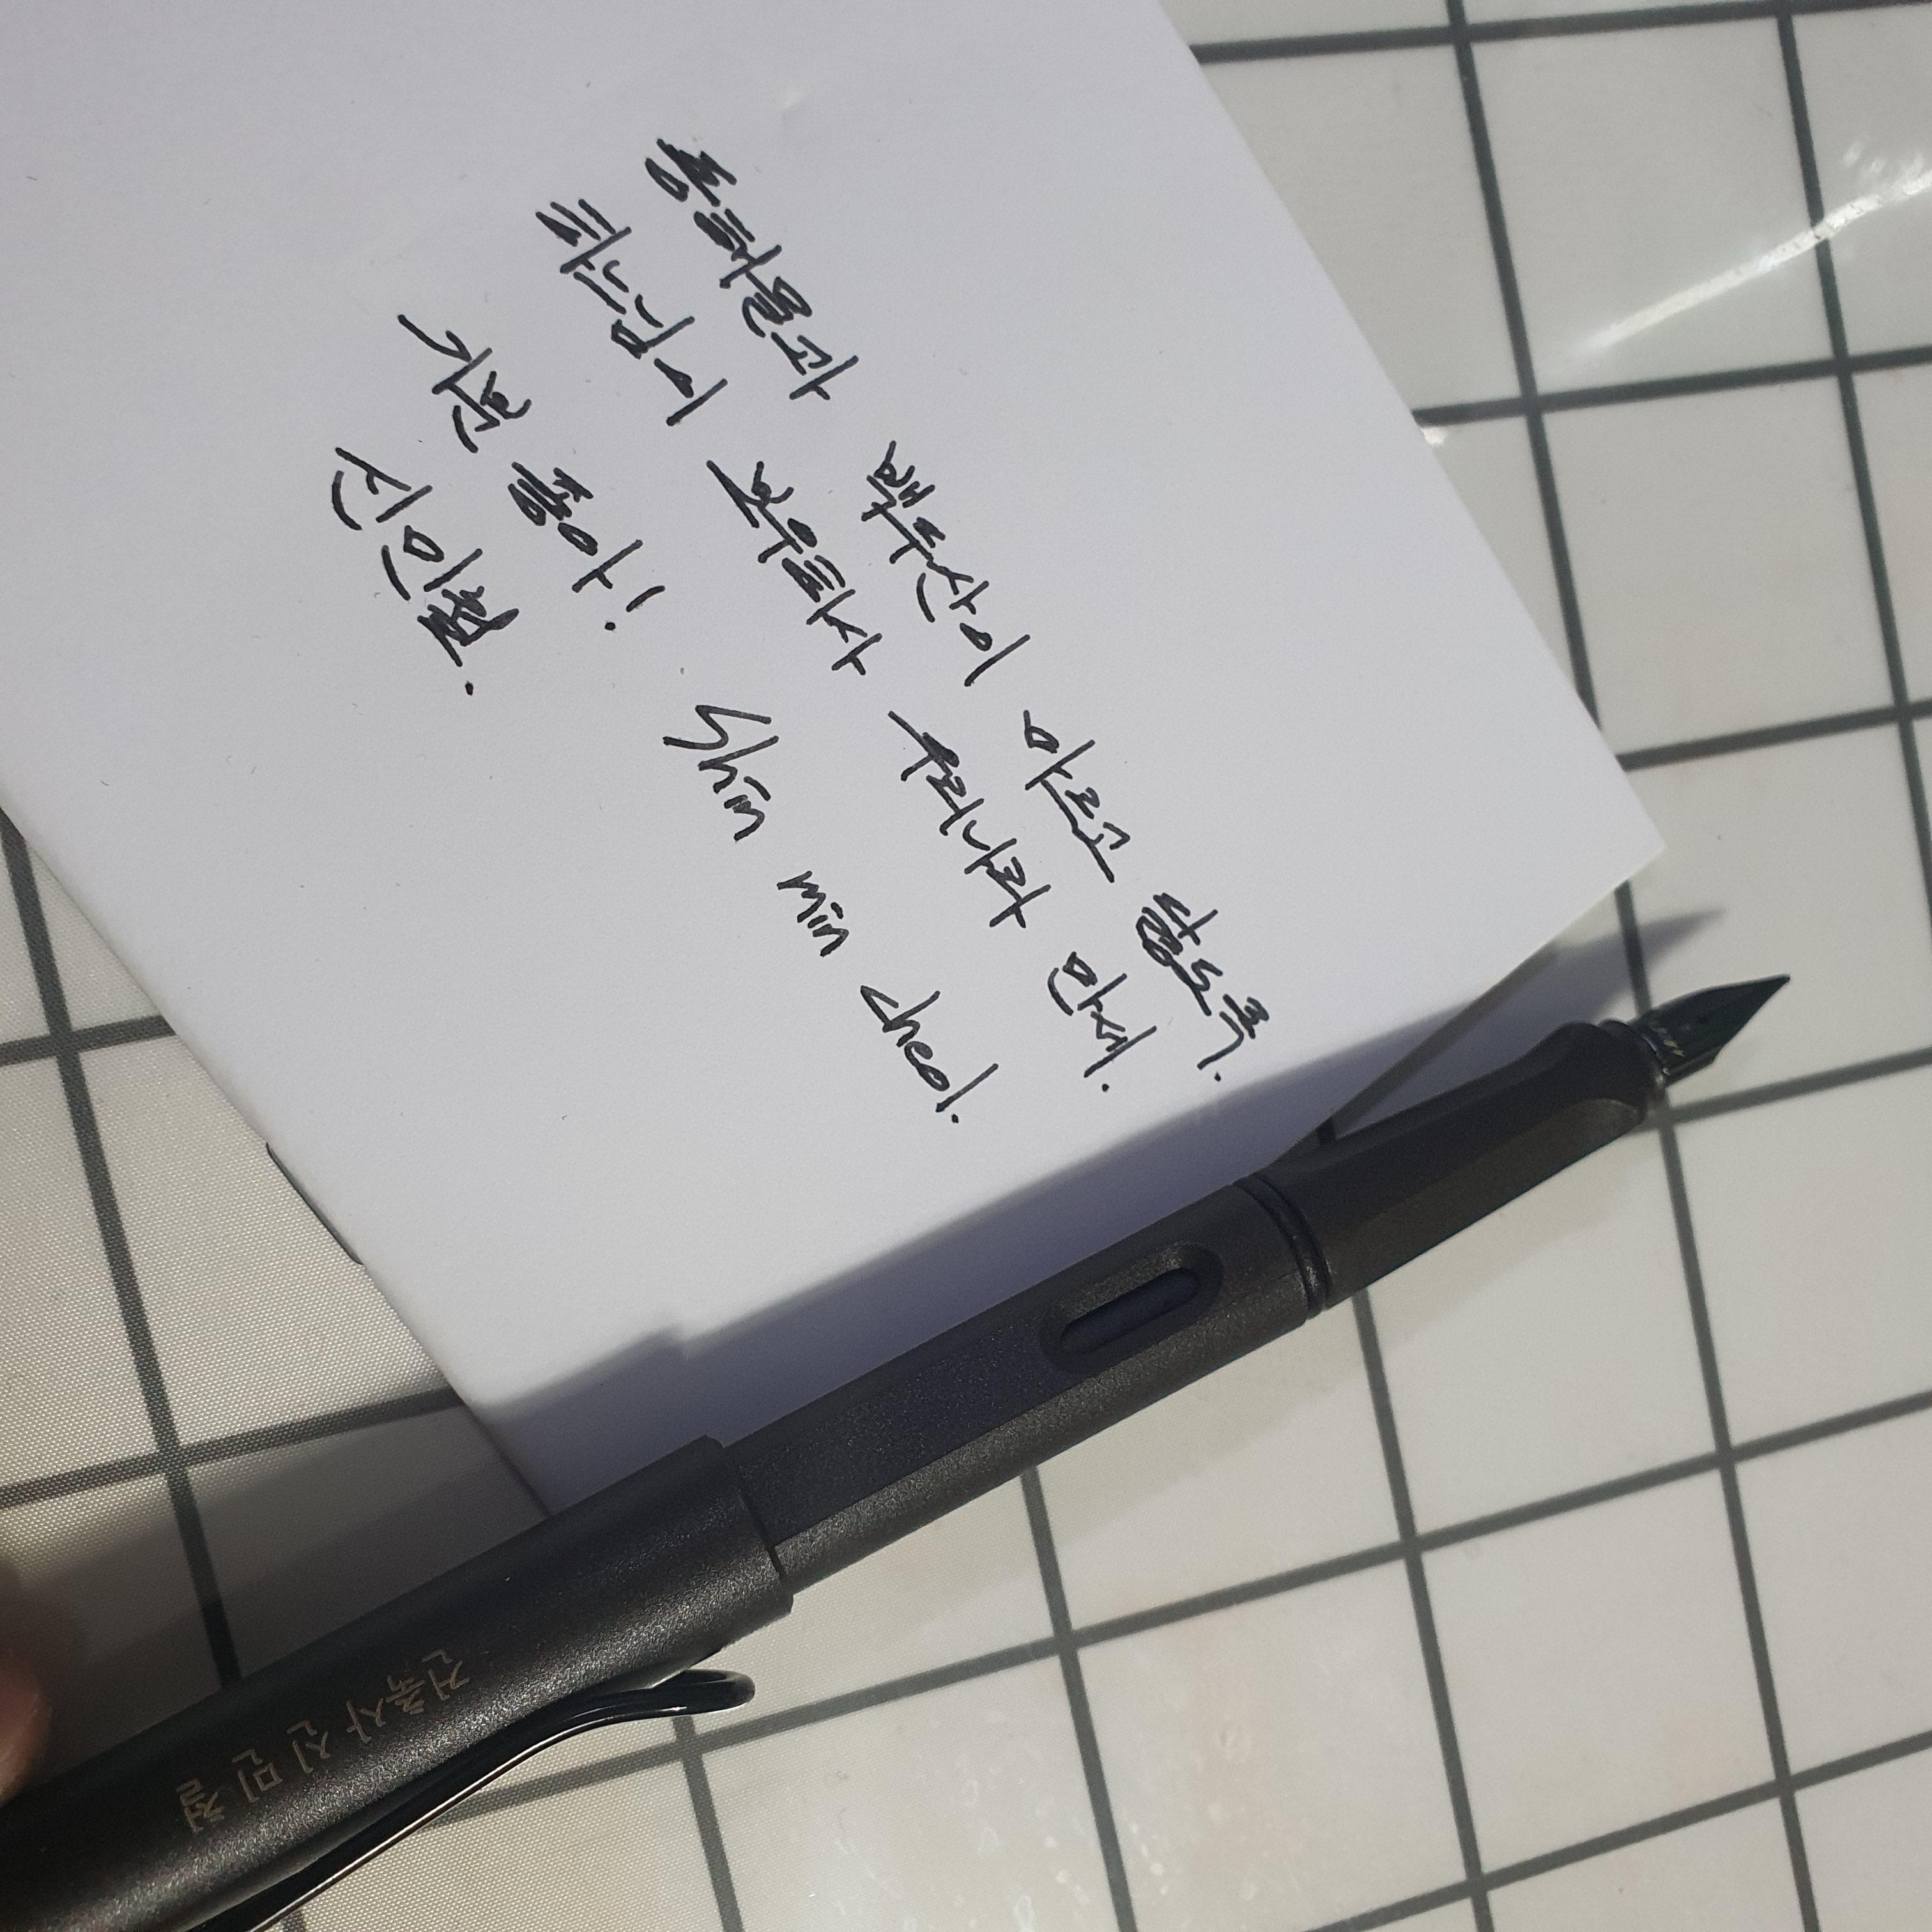 동해물과 백두산이 마르고 닳도록.
하느님이 보우하사 우리나라 만세.
기분 좋아! Shin min cheol.
신민철.
건축사 신민철